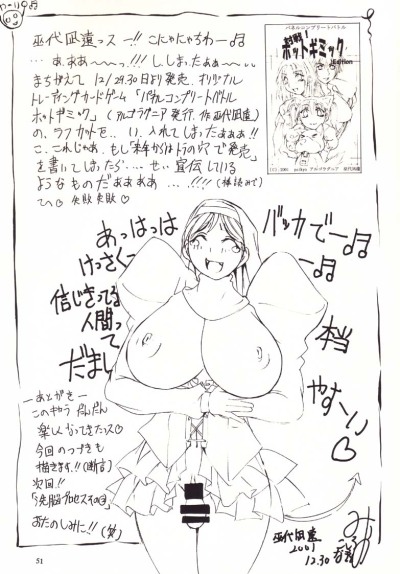 巫代凪遠っス ー!! こにゃにゃちわー♬
…あ.ぁぁぁ〜っ!!! ししまったぁぁ〜…
まちがえて 12/29.30日より発売、オリジナル
トレーディングカードゲーム「パネルコンプリートバトル
ホットギミック」(アルゴラグニア発行、作巫代凪遠)
の、ラフカットを‥い、入れてしまったぁぁぁ!!
こ、これじゃあ、もし「来年からはトラの穴で発売」
を書いてしまったら‥‥せ、宣伝している
ようなものだぁぁぁぁ…!!!! (棒読みで)
てへ♡失敗失敗♡
パネルコンプリートバトル
対戦!
ホットギミック
Edition
(C) 2001
アルゴラグニア 巫代凪遠
あっはっは
けっさくー
信じきってる
人間って
だまし
バッカでー♬
ー♬
本当
やすーい
♡
ーあとがきー
このキョウ だんだん
楽しくなってきたっス♡
今回のつづきも
描きます!!(断言)
次回!!
「洗脳プロセスその
おたのしみに!! (笑)
巫代凪遠
2001
12.30
51